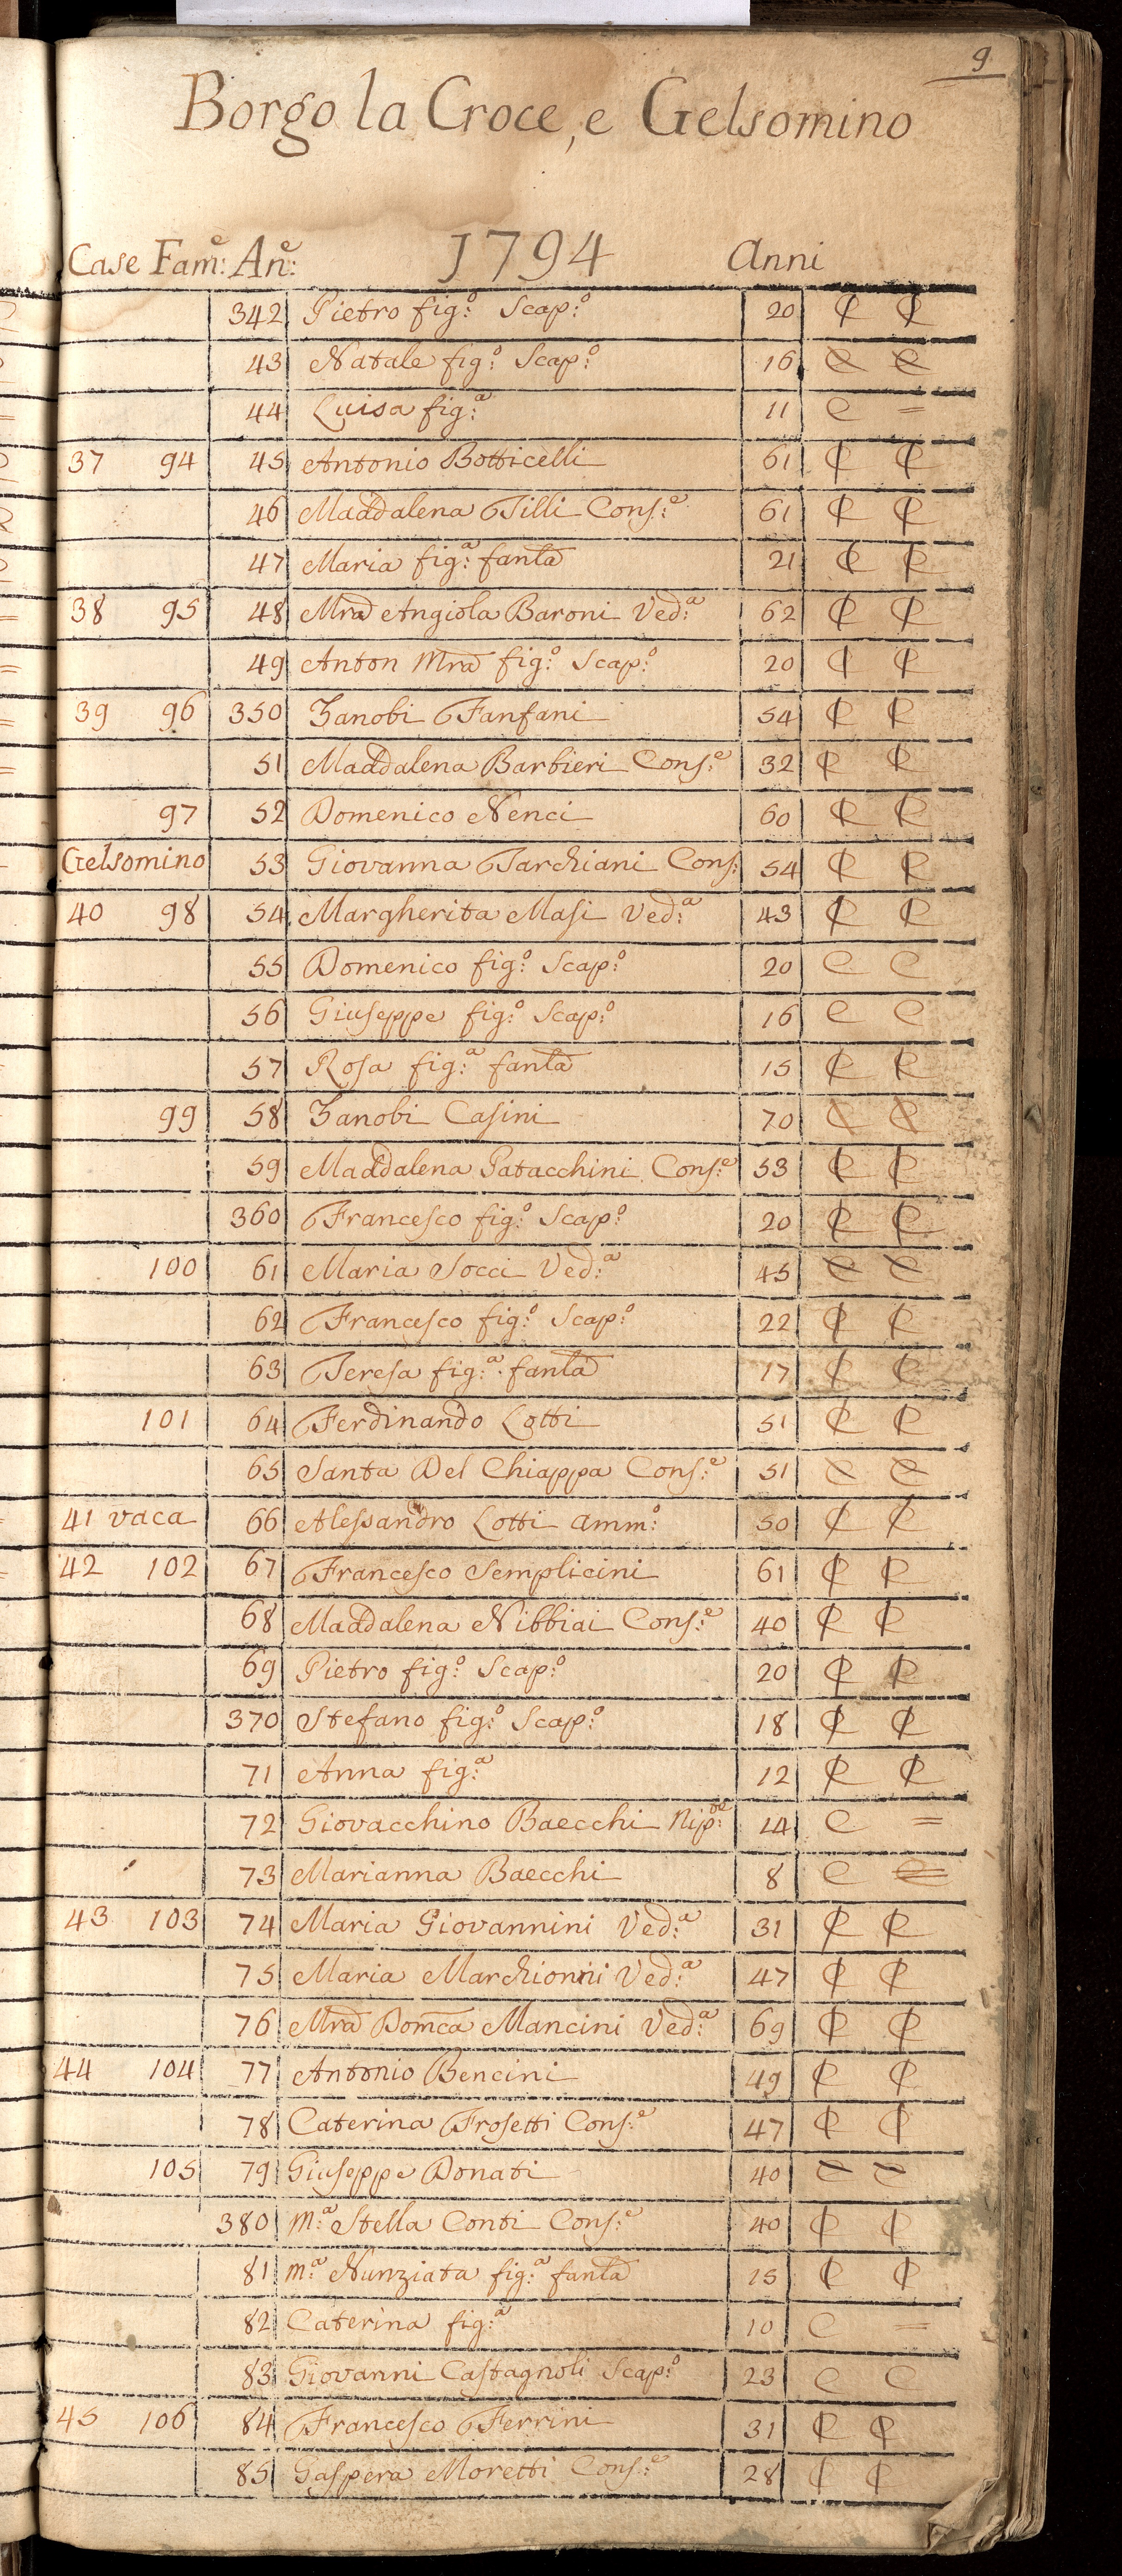 9
Borgo la Croce, e Gelsomino
Case Fam:e An:e 1794 Anni
342 Pietro fig:o Scap:o 20 C C
43 Natale fig:o Scap:o 16 C C
44 Luisa fig:a 11 C =
37 94 45 Antonio Botticelli 61 C C
46 Maddalena Tilli Cons:e 61 C C
47 Maria fig:a fanla 21 C C
38 95 48 Mra Angiola Baroni Ved:a 62 C C
49 Anton Mra fig:o Scap:o 20 C C
39 96 350 Zanobi Fanfani 54 C C
51 Maddalena Barbieri Cons:e 32 C C
97 52 Domenico Nenci 60 C C
Gelsomino 53 Giovanna Tarchiani Cons: 54 C C
40 98 54 Margherita Masi Ved:a 43 C C
55 Domenico fig:o Scap:o 20 C C
56 Giuseppe fig:o Scap:o 16 C C
57 Rosa fig:a fanla 15 C C
99 58 Zanobi Casini 70 C C
59 Maddalena Patacchini Cons:e 53 C C
360 Francesco fig:o Scap:o 20 C C
100 61 Maria Socci Ved:a 45 C C
62 Francesco fig:o Scap:o 22 C C
63 Teresa fig:a fanla 17 C C
101 64 Ferdinando Lotti 51 C C
65 Santa Del Chiappa Cons:e 51 C C
41 vaca 66 Alessandro Lotti amm:o 50 C C
42 102 67 Francesco Semplicini 61 C C
68 Maddalena Nibbiai Cons:e 40 C C
69 Pietro fig:o Scap:o 20 C C
370 Stefano fig:o Scap:o 18 C C
71 Anna fig:a 12 C C
72 Giovacchino Baecchi Nip:te 14 C =
73 Marianna Baecchi 8 C =
43 103 74 Maria Giovannini Ved:a 31 C C
75 Maria Marchionni Ved:a 47 C C
76 Mra Domca Mancini Ved:a 69 C C
44 104 77 Antonio Bencini 49 C C
78 Caterina Frosetti Cons:e 47 C C
105 79 Giuseppe Donati 40 C C
380 M:a Stella Conti Cons:e 40 C C
81 M:a Nunziata fig:a fanla 15 C C
82 Caterina fig:a 10 C =
83 Giovanni Castagnoli Scap:o 23 C C
45 106 84 Francesco Ferrini 31 C C
85 Gaspera Moretti Cons:e 28 C C